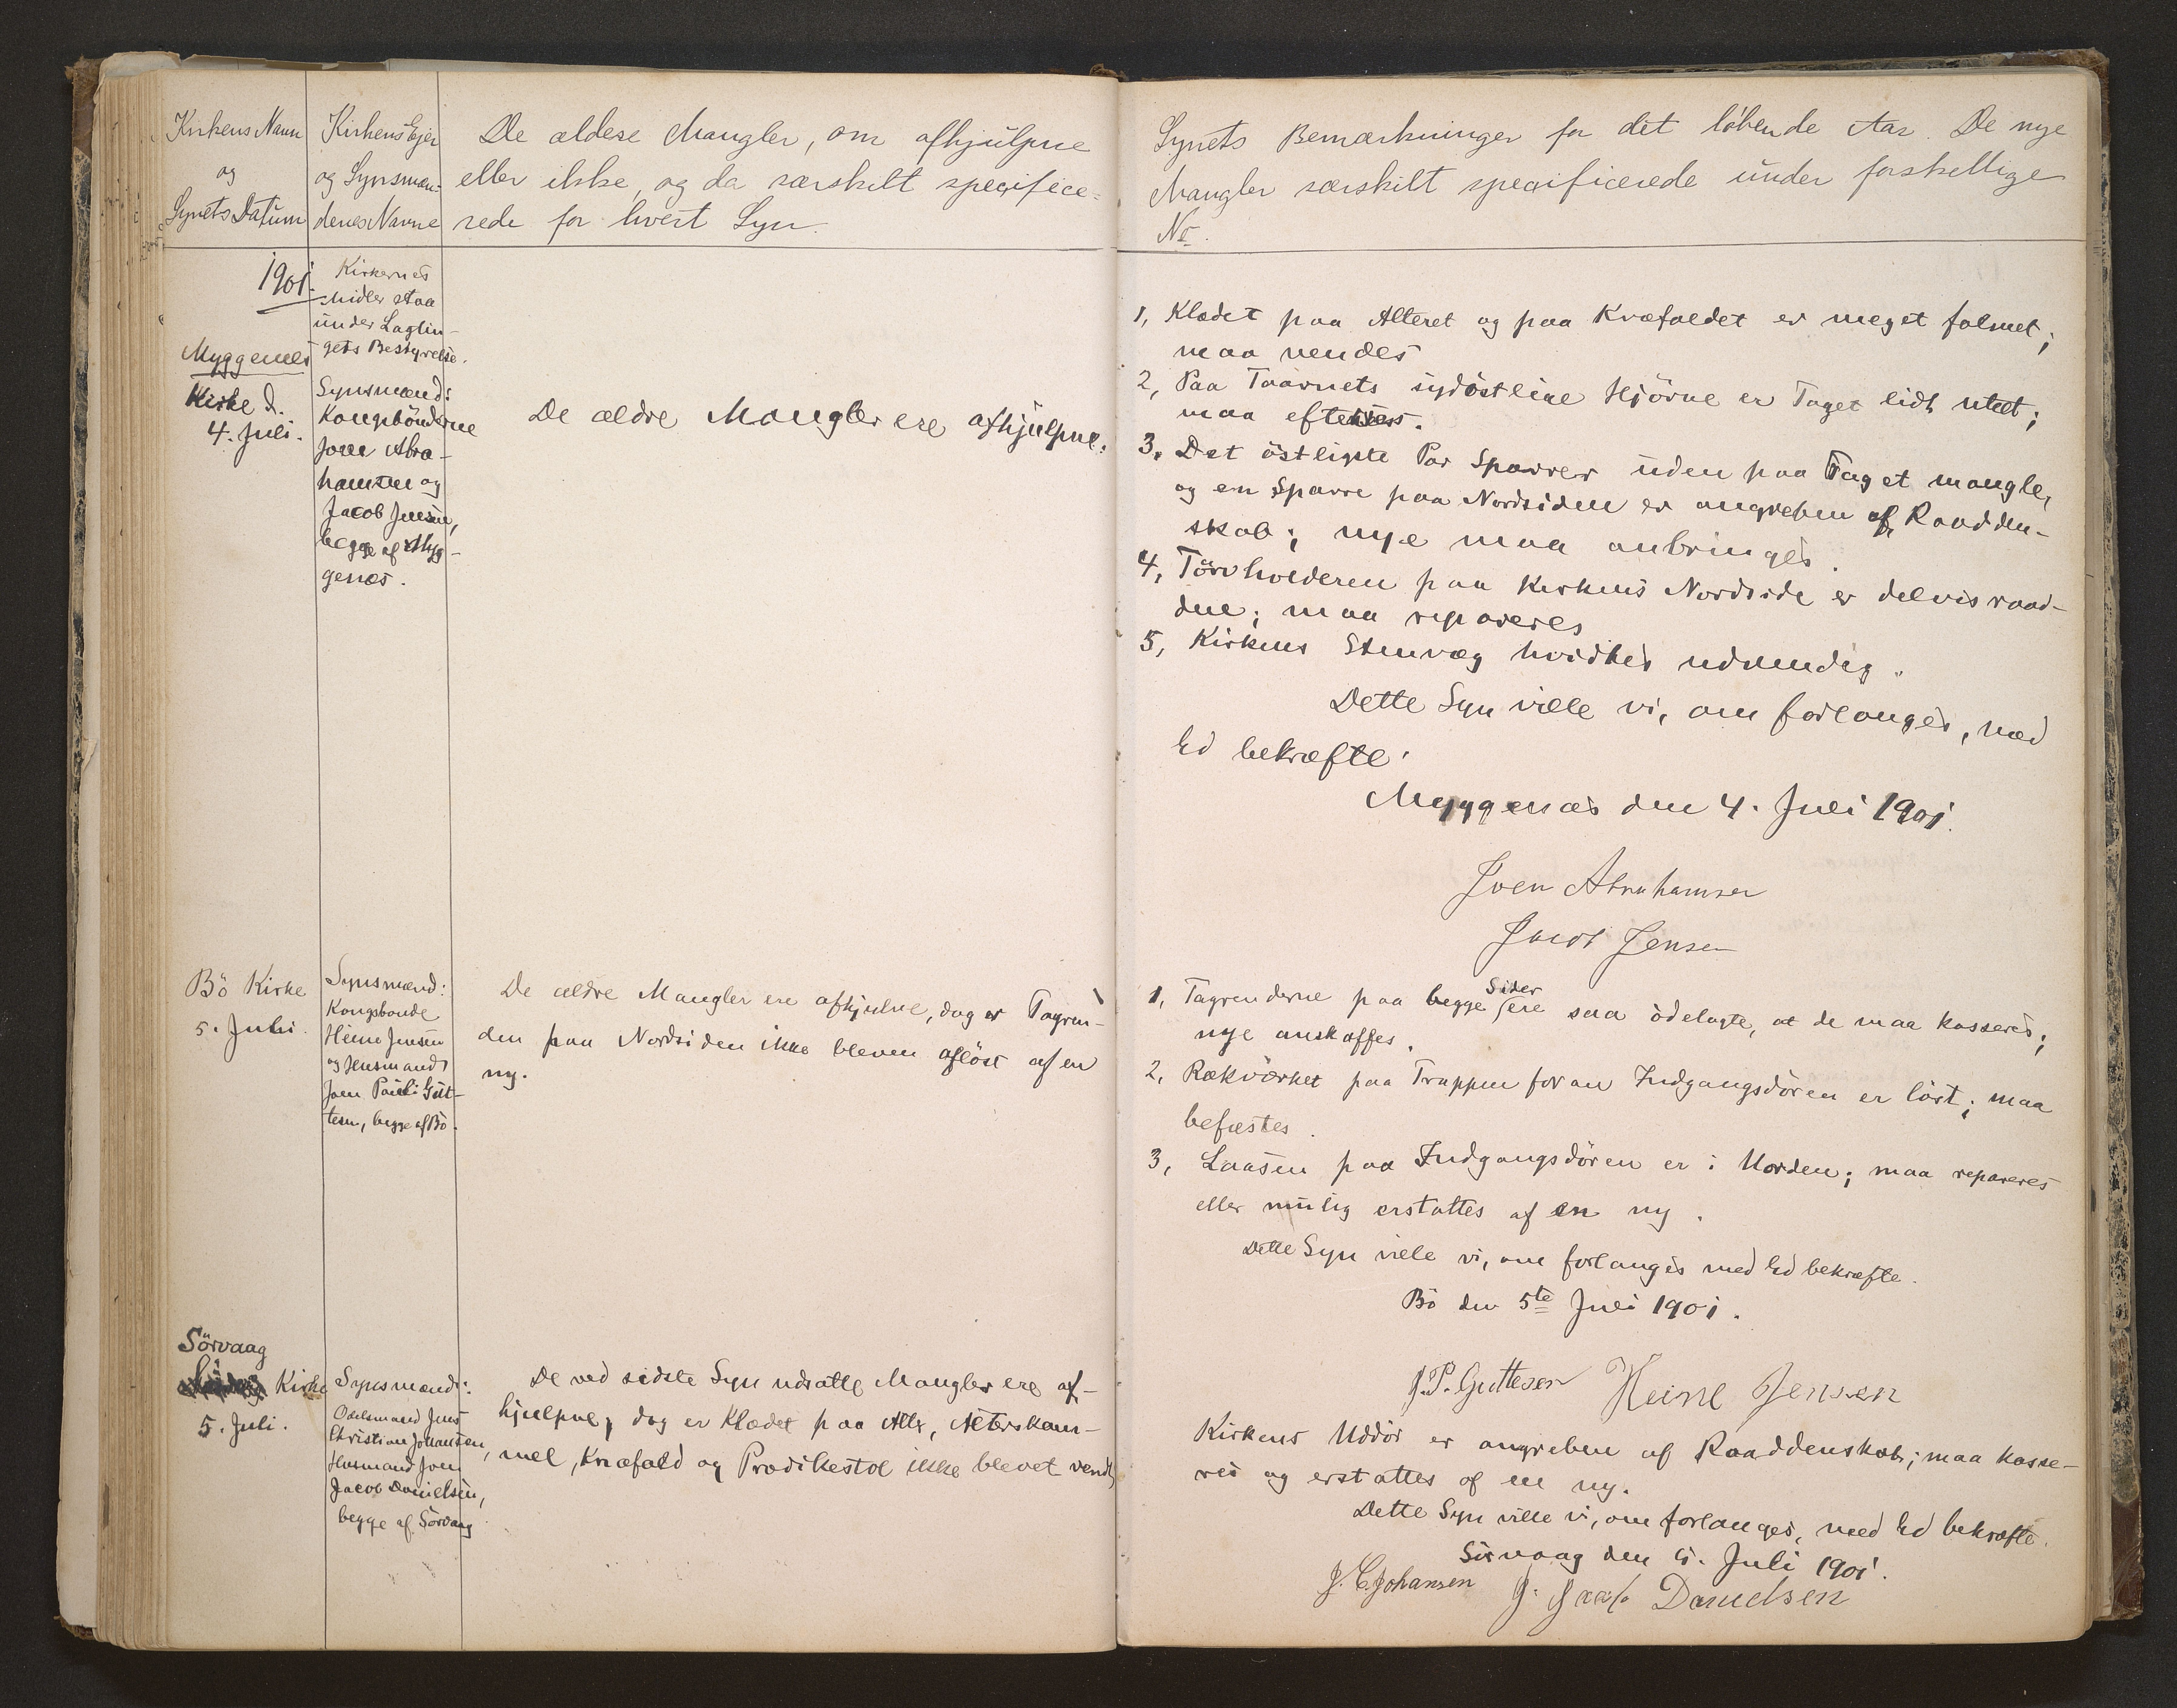 Kirkens Navn
og
Synets Datum
Kirkens Ejer
og Synsmæn-
denes Navne
De ældere Mangler, om afhjulpne
eller ikke, og da særskilt specifice-
rede for hvert Syn.
Synets Bemærkninger for det löbende Aar. De nye
Mangler særskilt specificerede under forskellige
No.
1901.
Myggenes
Kirke d.
4. Juli.
Kirkernes
Midler staa
under Lagtin-
gets Bestyrelse.
Synsmænd:
Kongsbönderne
Joen Abra-
hamsen og
Jacob Jensen,
begge af Myg-
genæs.
De ældre Mangler ere afhjulpne.
1, Klædet paa Alteret og paa Knæfaldet er meget falmet;
maa vendes
2, Paa Taarnets sydöstlige Hjörne er Taget lidt utæt;
maa efterses.
3, Det östligste Par Sparrer uden paa Taget mangler,
og en Sparre paa Nordsiden er angreben af Raadden-
skab; nye maa anbringes.
4, Törvholderen paa Kirkens Nordside er delvis raad-
den; maa repareres
5, Kirkens Stenvæg hvidtes udvendig.
Dette Syn ville vi, om forlanges, med
Ed bekræfte.
Myggenæs den 4. Juli 1901.
Joen Abrahamsen
Jacob Jensen
Bö Kirke
5. Juli.
Synsmænd:
Kongsbonde
Heine Jensen
og Husmand
Joen Pauli Gut-
tesen, begge af Bö.
De ældre Mangler ere afhjulne, dog er Tagren-
den paa Nordsiden ikke bleven aflöst af en
ny.
1, Tagrenderne paa begge Sider ere saa ödelagte, at de maa kasseres;
nye anskaffes.
2, Rækværket paa Trappen foran Indgangsdören er löst; maa
befæstes.
3, Laasen paa Indgangsdören er i Uorden; maa repareres
eller mulig erstattes af en ny.
Dette Syn ville vi, om forlanges med Ed bekræfte.
Bö den 5te Juli 1901.
J.P. Guttesen Heine Jensen
Sörvaag
Kirke
5. Juli.
Synsmænd:
Odelsmand Jens
Christian Johansen,
Husmand Joen
Jacob Danielsen,
begge af Sörvaag
De ved sidste Syn udsatte Mangler ere af-
hjulpne, dog er Klædet paa Alter, Alterskam-
mel, Knæfald og Prædikestol ikke blevet vendt,
Kirkens Uddör er angreben af Raaddenskab; maa kasse-
res og erstattes af en ny.
Dette Syn ville vi, om forlanges, med Ed bekræfte.
Sörvaag den 5. Juli 1901.
J. C. Johansen J. Jacob Danielsen